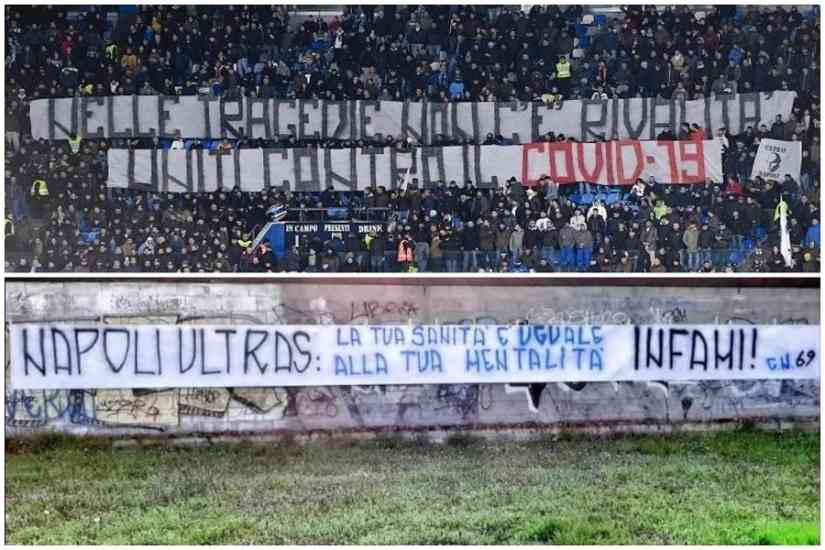 NELLE TRAGEDIE NON C'E' RIVALITA'
UNITI CONTRO IL COVID-19
IN CAMPO PRESENTI
NAPOLI ULTRAS: LA TUA SANITA' E' UGUALE
ALLA TUA MENTALITA' INFAMI! C.N.69